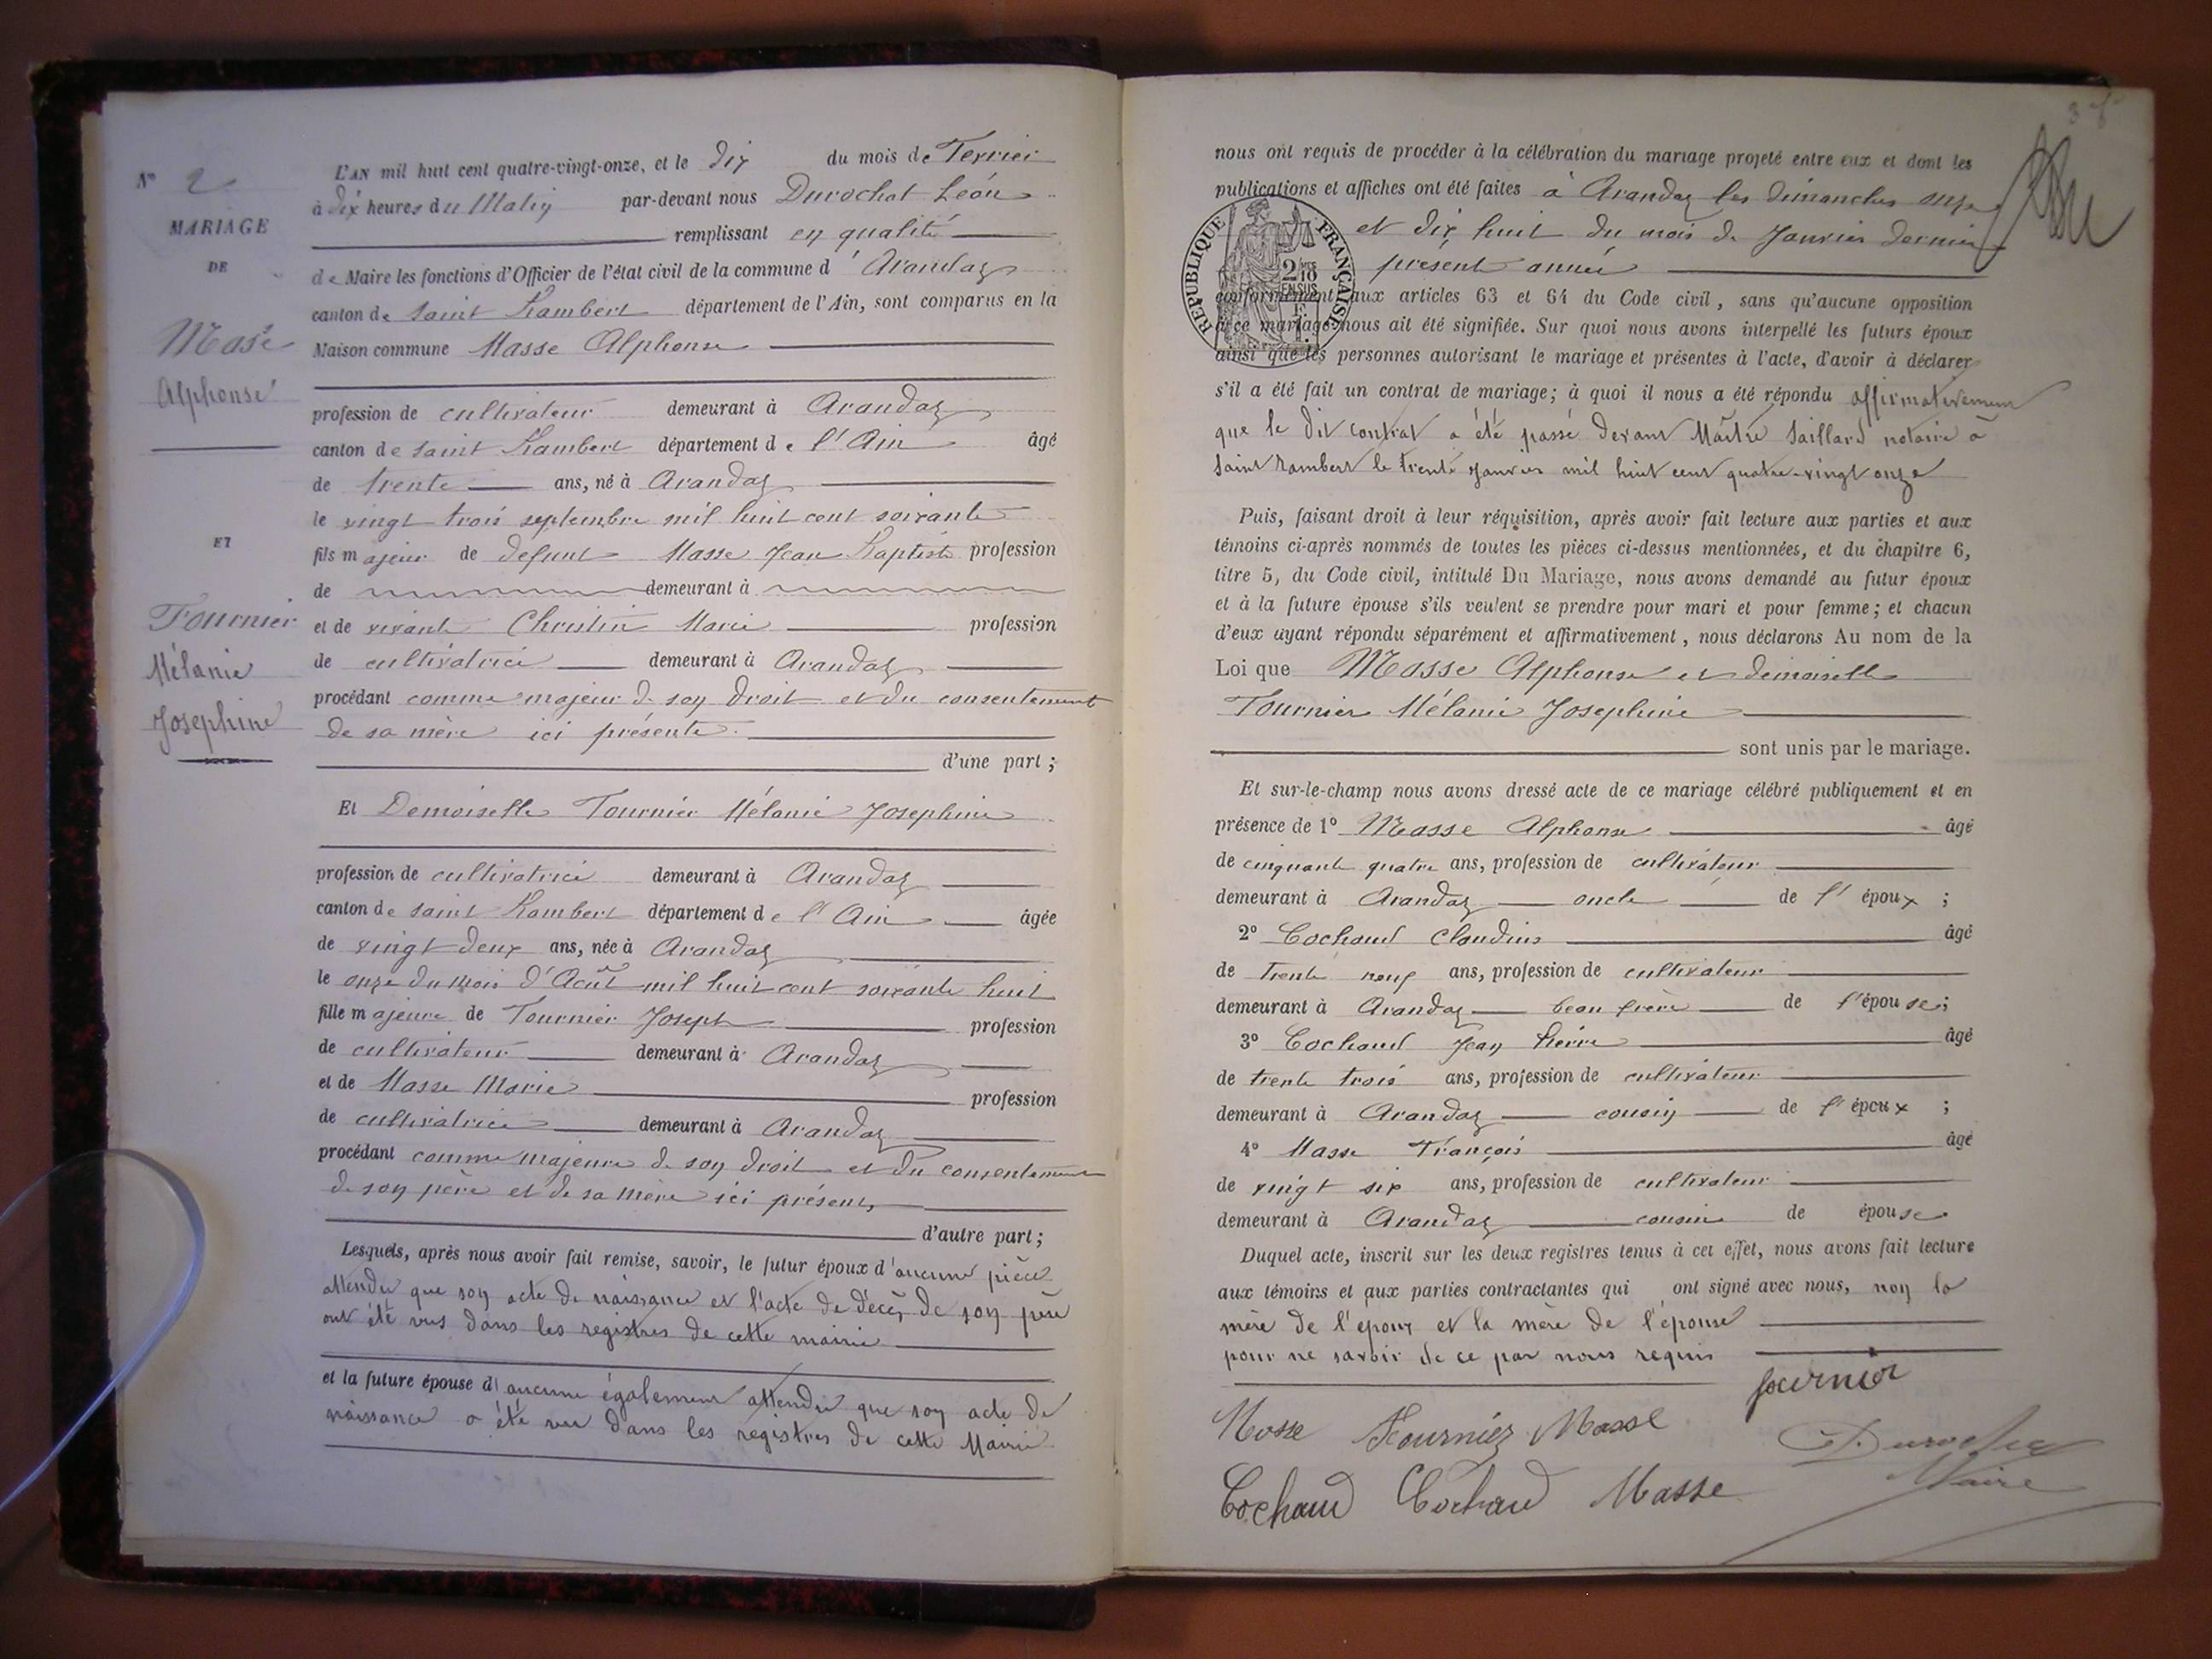 N° 2
MARIAGE
DE
Masse
Alphonse
ET
Tournier
Mélanie
Josephine
L'AN mil huit cent quatre-vingt-onze, et le dix du mois de Fevrier
à dix heures du Matin par-devant nous Durochat Léon
remplissant en qualité
de Maire les fonctions d'Officier de l'état civil de la commune d'Arandas
canton de Saint Rambert département de l'Ain, sont comparus en la
Maison commune Masse Alphonse
profession de cultivateur demeurant à Arandas
canton de saint Rambert département de l'Ain âgé
de trente ans, né à Arandas
le vingt trois septembre mil huit cent soixante
fils majeur de défunt Masse Jean Baptiste profession
de demeurant à
et de vivante Christin Marie profession
de cultivatrice demeurant à Arandas
procédant comme majeur de son droit et du consentement
de sa mère ici présente.
d'une part ;
Et Demoiselle Tournier Mélanie Josephine
profession de cultivatrice demeurant à Arandas
canton de saint Rambert département de l'Ain âgée
de vingt deux ans, née à Arandas
le onze du mois d'Août mil huit cent soixante huit
fille majeure de Tournier Joseph profession
de cultivateur demeurant à Arandas
et de Masse Marie profession
de cultivatrice demeurant à Arandas
procédant comme majeure de son droit et du consentement
de son père et de sa mère ici présents,
d'autre part ;
Lesquels, après nous avoir fait remise, savoir, le futur époux d'aucune pièce
attendu que son acte de naissance et l'acte de décès de son père
ont été vus dans les registres de cette mairie
et la future épouse d'aucune également attendu que son acte de
naissance a été vu dans les registres de cette Mairie
nous ont requis de procéder à la célébration du mariage projeté entre eux et dont les
publications et affiches ont été faites à Arandas les dimanches onze
et dix huit du mois de Janvier dernier
présent année
RÉPUBLIQUE FRANÇAISE
2/10 EN SUS
conformément aux articles 63 et 64 du Code civil, sans qu'aucune opposition
à ce mariage nous ait été signifiée. Sur quoi nous avons interpellé les futurs époux
ainsi que les personnes autorisant le mariage et présentes à l'acte, d'avoir à déclarer
s'il a été fait un contrat de mariage; à quoi il nous a été répondu affirmativement
que le dit contrat a été passé devant Maître Saillard notaire à
Saint Rambert le trente janvier mil huit cent quatre-vingt onze
Puis, faisant droit à leur réquisition, après avoir fait lecture aux parties et aux
témoins ci-après nommés de toutes les pièces ci-dessus mentionnées, et du chapitre 6,
titre 5, du Code civil, intitulé Du Mariage, nous avons demandé au futur époux
et à la future épouse s'ils veulent se prendre pour mari et pour femme; et chacun
d'eux ayant répondu séparément et affirmativement, nous déclarons Au nom de la
Loi que Masse Alphonse et demoiselle
Tournier Mélanie Josephine
sont unis par le mariage.
Et sur-le-champ nous avons dressé acte de ce mariage célébré publiquement et en
présence de 1° Masse Alphonse âgé
de cinquante quatre ans, profession de cultivateur
demeurant à Arandas oncle de l'époux ;
2° Cochaud Claudius âgé
de trente neuf ans, profession de cultivateur
demeurant à Arandas beau frère de l'épouse;
3° Cochaud Jean Pierre âgé
de trente trois ans, profession de cultivateur
demeurant à Arandas cousin de l'époux ;
4° Masse François âgé
de vingt six ans, profession de cultivateur
demeurant à Arandas cousin de épouse
Duquel acte, inscrit sur les deux registres tenus à cet effet, nous avons fait lecture
aux témoins et aux parties contractantes qui ont signé avec nous, non la
mère de l'époux et la mère de l'épouse
pour ne savoir de ce par nous requis
fournier
Masse Tournier Masse
Durochat
Maire
Cochaud Cochaud Masse